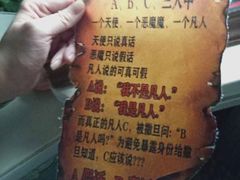 A、B、C、三人中
一个天使、一个恶魔、一个凡人
天使只说真话
恶魔只说假话
凡人说的可真可假
A说：“我不是凡人。”
B说：“我是凡人。”
而真正的凡人C，被撒旦问：“B
是凡人吗？”为避免暴露身份给撒
旦知道，C应该说???